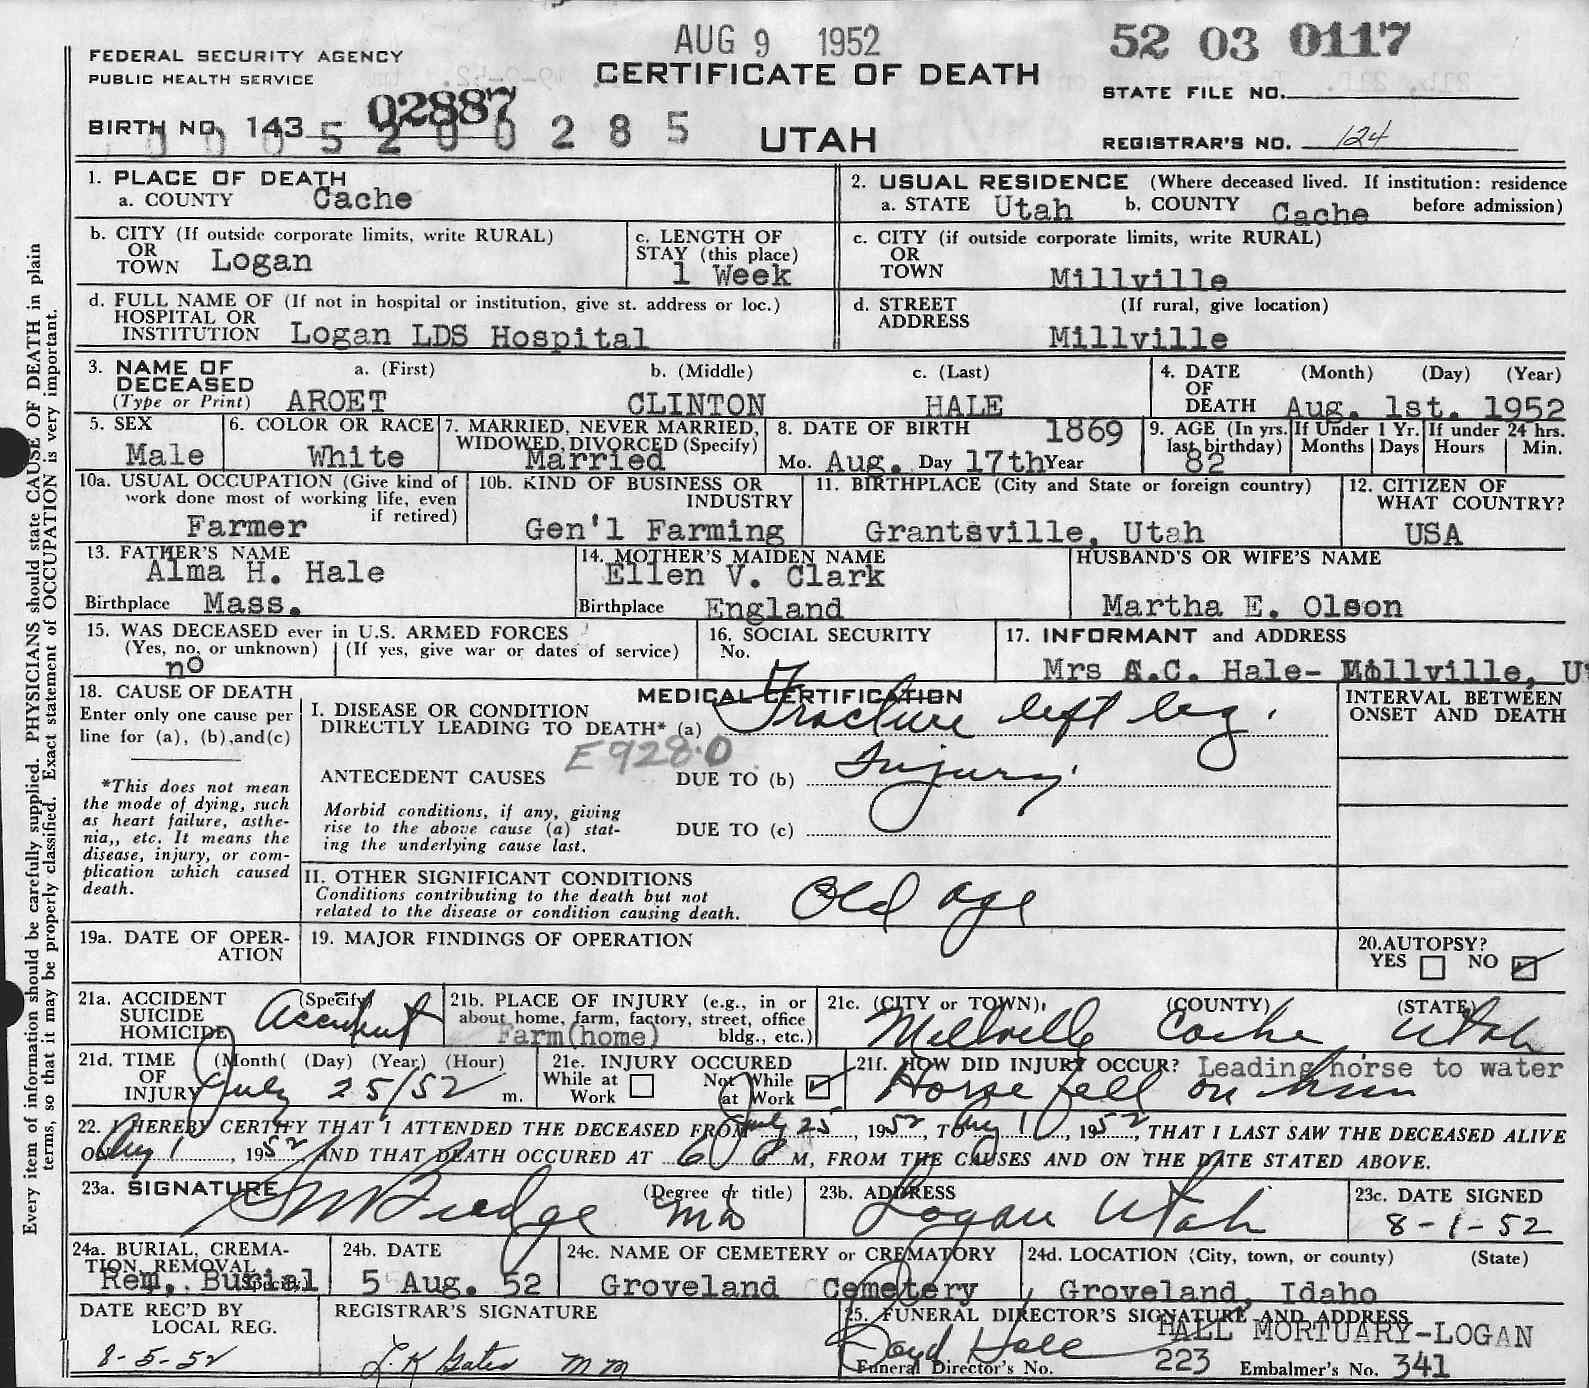 AUG 9 1952
52 03 0117
FEDERAL SECURITY AGENCY
PUBLIC HEALTH SERVICE
CERTIFICATE OF DEATH
STATE FILE NO.
02887
BIRTH NO. 143
5 2 0 0 2 8 5
UTAH
REGISTRAR'S NO. 124
1. PLACE OF DEATH
a. COUNTY Cache
2. USUAL RESIDENCE (Where deceased lived. If institution: residence before admission)
a. STATE Utah b. COUNTY Cache
b. CITY (If outside corporate limits, write RURAL)
OR
TOWN Logan
c. LENGTH OF
STAY (this place)
1 Week
c. CITY (if outside corporate limits, write RURAL)
OR
TOWN Millville
d. FULL NAME OF (If not in hospital or institution, give st. address or loc.)
HOSPITAL OR
INSTITUTION Logan LDS Hospital
d. STREET (If rural, give location)
ADDRESS Millville
3. NAME OF
DECEASED
(Type or Print)
a. (First) b. (Middle) c. (Last)
AROET CLINTON HALE
4. DATE (Month) (Day) (Year)
OF
DEATH Aug. 1st. 1952
5. SEX
Male
6. COLOR OR RACE
White
7. MARRIED, NEVER MARRIED,
WIDOWED, DIVORCED (Specify)
Married
8. DATE OF BIRTH 1869
Mo. Aug. Day 17th Year
9. AGE (In yrs. last birthday)
82
If Under 1 Yr.
Months Days
If under 24 hrs.
Hours Min.
10a. USUAL OCCUPATION (Give kind of
work done most of working life, even
if retired)
Farmer
10b. KIND OF BUSINESS OR
INDUSTRY
Gen'l Farming
11. BIRTHPLACE (City and State or foreign country)
Grantsville, Utah
12. CITIZEN OF
WHAT COUNTRY?
USA
13. FATHER'S NAME
Alma H. Hale
Birthplace Mass.
14. MOTHER'S MAIDEN NAME
Ellen V. Clark
Birthplace England
HUSBAND'S OR WIFE'S NAME
Martha E. Olson
15. WAS DECEASED ever in U.S. ARMED FORCES
(Yes, no, or unknown) (If yes, give war or dates of service)
no
16. SOCIAL SECURITY
No.
17. INFORMANT and ADDRESS
Mrs A.C. Hale- Millville, Ut
18. CAUSE OF DEATH
Enter only one cause per
line for (a), (b), and (c)
*This does not mean
the mode of dying, such
as heart failure, asthe-
nia,, etc. It means the
disease, injury, or com-
plication which caused
death.
MEDICAL CERTIFICATION
I. DISEASE OR CONDITION
DIRECTLY LEADING TO DEATH* (a) Fracture left leg.
E928.0
ANTECEDENT CAUSES DUE TO (b) Injury
Morbid conditions, if any, giving
rise to the above cause (a) stat-
ing the underlying cause last.
DUE TO (c)
INTERVAL BETWEEN
ONSET AND DEATH
II. OTHER SIGNIFICANT CONDITIONS
Conditions contributing to the death but not
related to the disease or condition causing death.
Old age
19a. DATE OF OPER-
ATION
19. MAJOR FINDINGS OF OPERATION
20. AUTOPSY?
YES NO
21a. ACCIDENT (Specify)
SUICIDE
HOMICIDE Accident
21b. PLACE OF INJURY (e.g., in or
about home, farm, factory, street, office
bldg., etc.)
Farm(home)
21c. (CITY or TOWN), (COUNTY) (STATE)
Millville Cache Utah
21d. TIME (Month( (Day) (Year) (Hour)
OF
INJURY July 25/52 m.
21e. INJURY OCCURED
While at Work Not While at Work
21f. HOW DID INJURY OCCUR? Leading horse to water
Horse fell on him
22. I HEREBY CERTIFY THAT I ATTENDED THE DECEASED FROM July 25, 1952, TO Aug 1, 1952, THAT I LAST SAW THE DECEASED ALIVE
ON Aug 1, 1952 AND THAT DEATH OCCURED AT 6 P M, FROM THE CAUSES AND ON THE DATE STATED ABOVE.
23a. SIGNATURE (Degree or title) MD
23b. ADDRESS
Logan Utah
23c. DATE SIGNED
8-1-52
24a. BURIAL, CREMA-
TION, REMOVAL
(Specify)
Rem, Burial
24b. DATE
5 Aug. 52
24c. NAME OF CEMETERY or CREMATORY
Groveland Cemetery
24d. LOCATION (City, town, or county) (State)
Groveland, Idaho
DATE REC'D BY
LOCAL REG.
8-5-52
REGISTRAR'S SIGNATURE
25. FUNERAL DIRECTOR'S SIGNATURE AND ADDRESS
HALL MORTUARY-LOGAN
Funeral Director's No. 223 Embalmer's No. 341
Every item of information should be carefully supplied. PHYSICIANS should state CAUSE OF DEATH in plain
terms, so that it may be properly classified. Exact statement of OCCUPATION is very important.